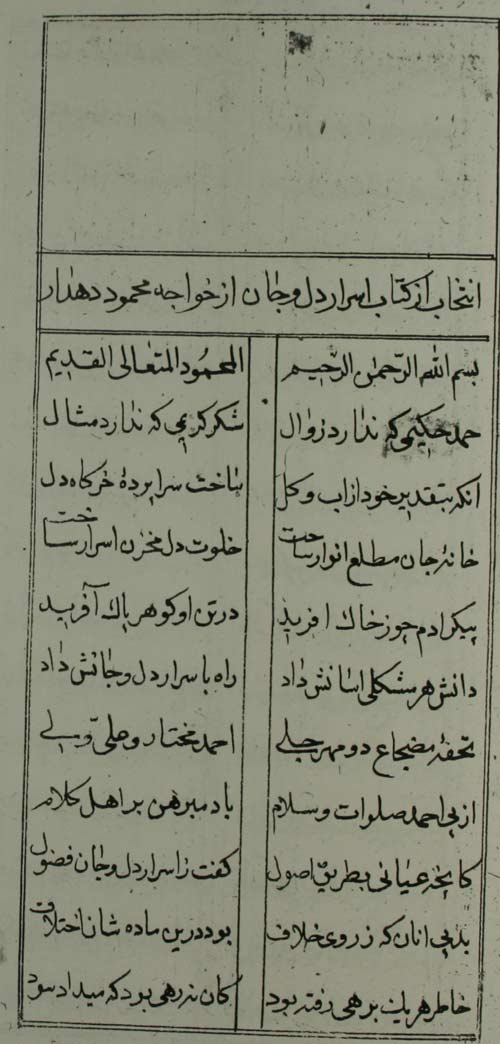 انتخاب از کتاب اسرار دل و جان از خواجه محمود دهدار
بسم الله الرّحمن الرّحیم المحمُود المتعالی القدیم
حمد حکیمی که ندارد زوال شکر کریمی که ندارد مثال
آنکه بتقدیر خود از آب و کل ساخت سراپردهٔ خرکاه دل
خانهٔ جان مطلع انوار ساخت خلوت دل مخزن اسرار ساخت
پیکر ادم چو ز خاك افرید در تن او کوهر پاك آفرید
دانش هر مشکلی اسانش داد راه باسرار دل و جانش داد
تحفهٔ دو مهر جلی احمد مختار و علی ولی
از پی احمد صلوات و سلام باد مبرهن بر اهل کلام
کانچه عیانی بطریق اصول کفت ز اسرار دل و جان فضول
بد پی انان که ز روی خلاف بود درین ماده شان اختلاف
خاطر هر یك برهی رفته بود کان نه رهی بود که میداد سود